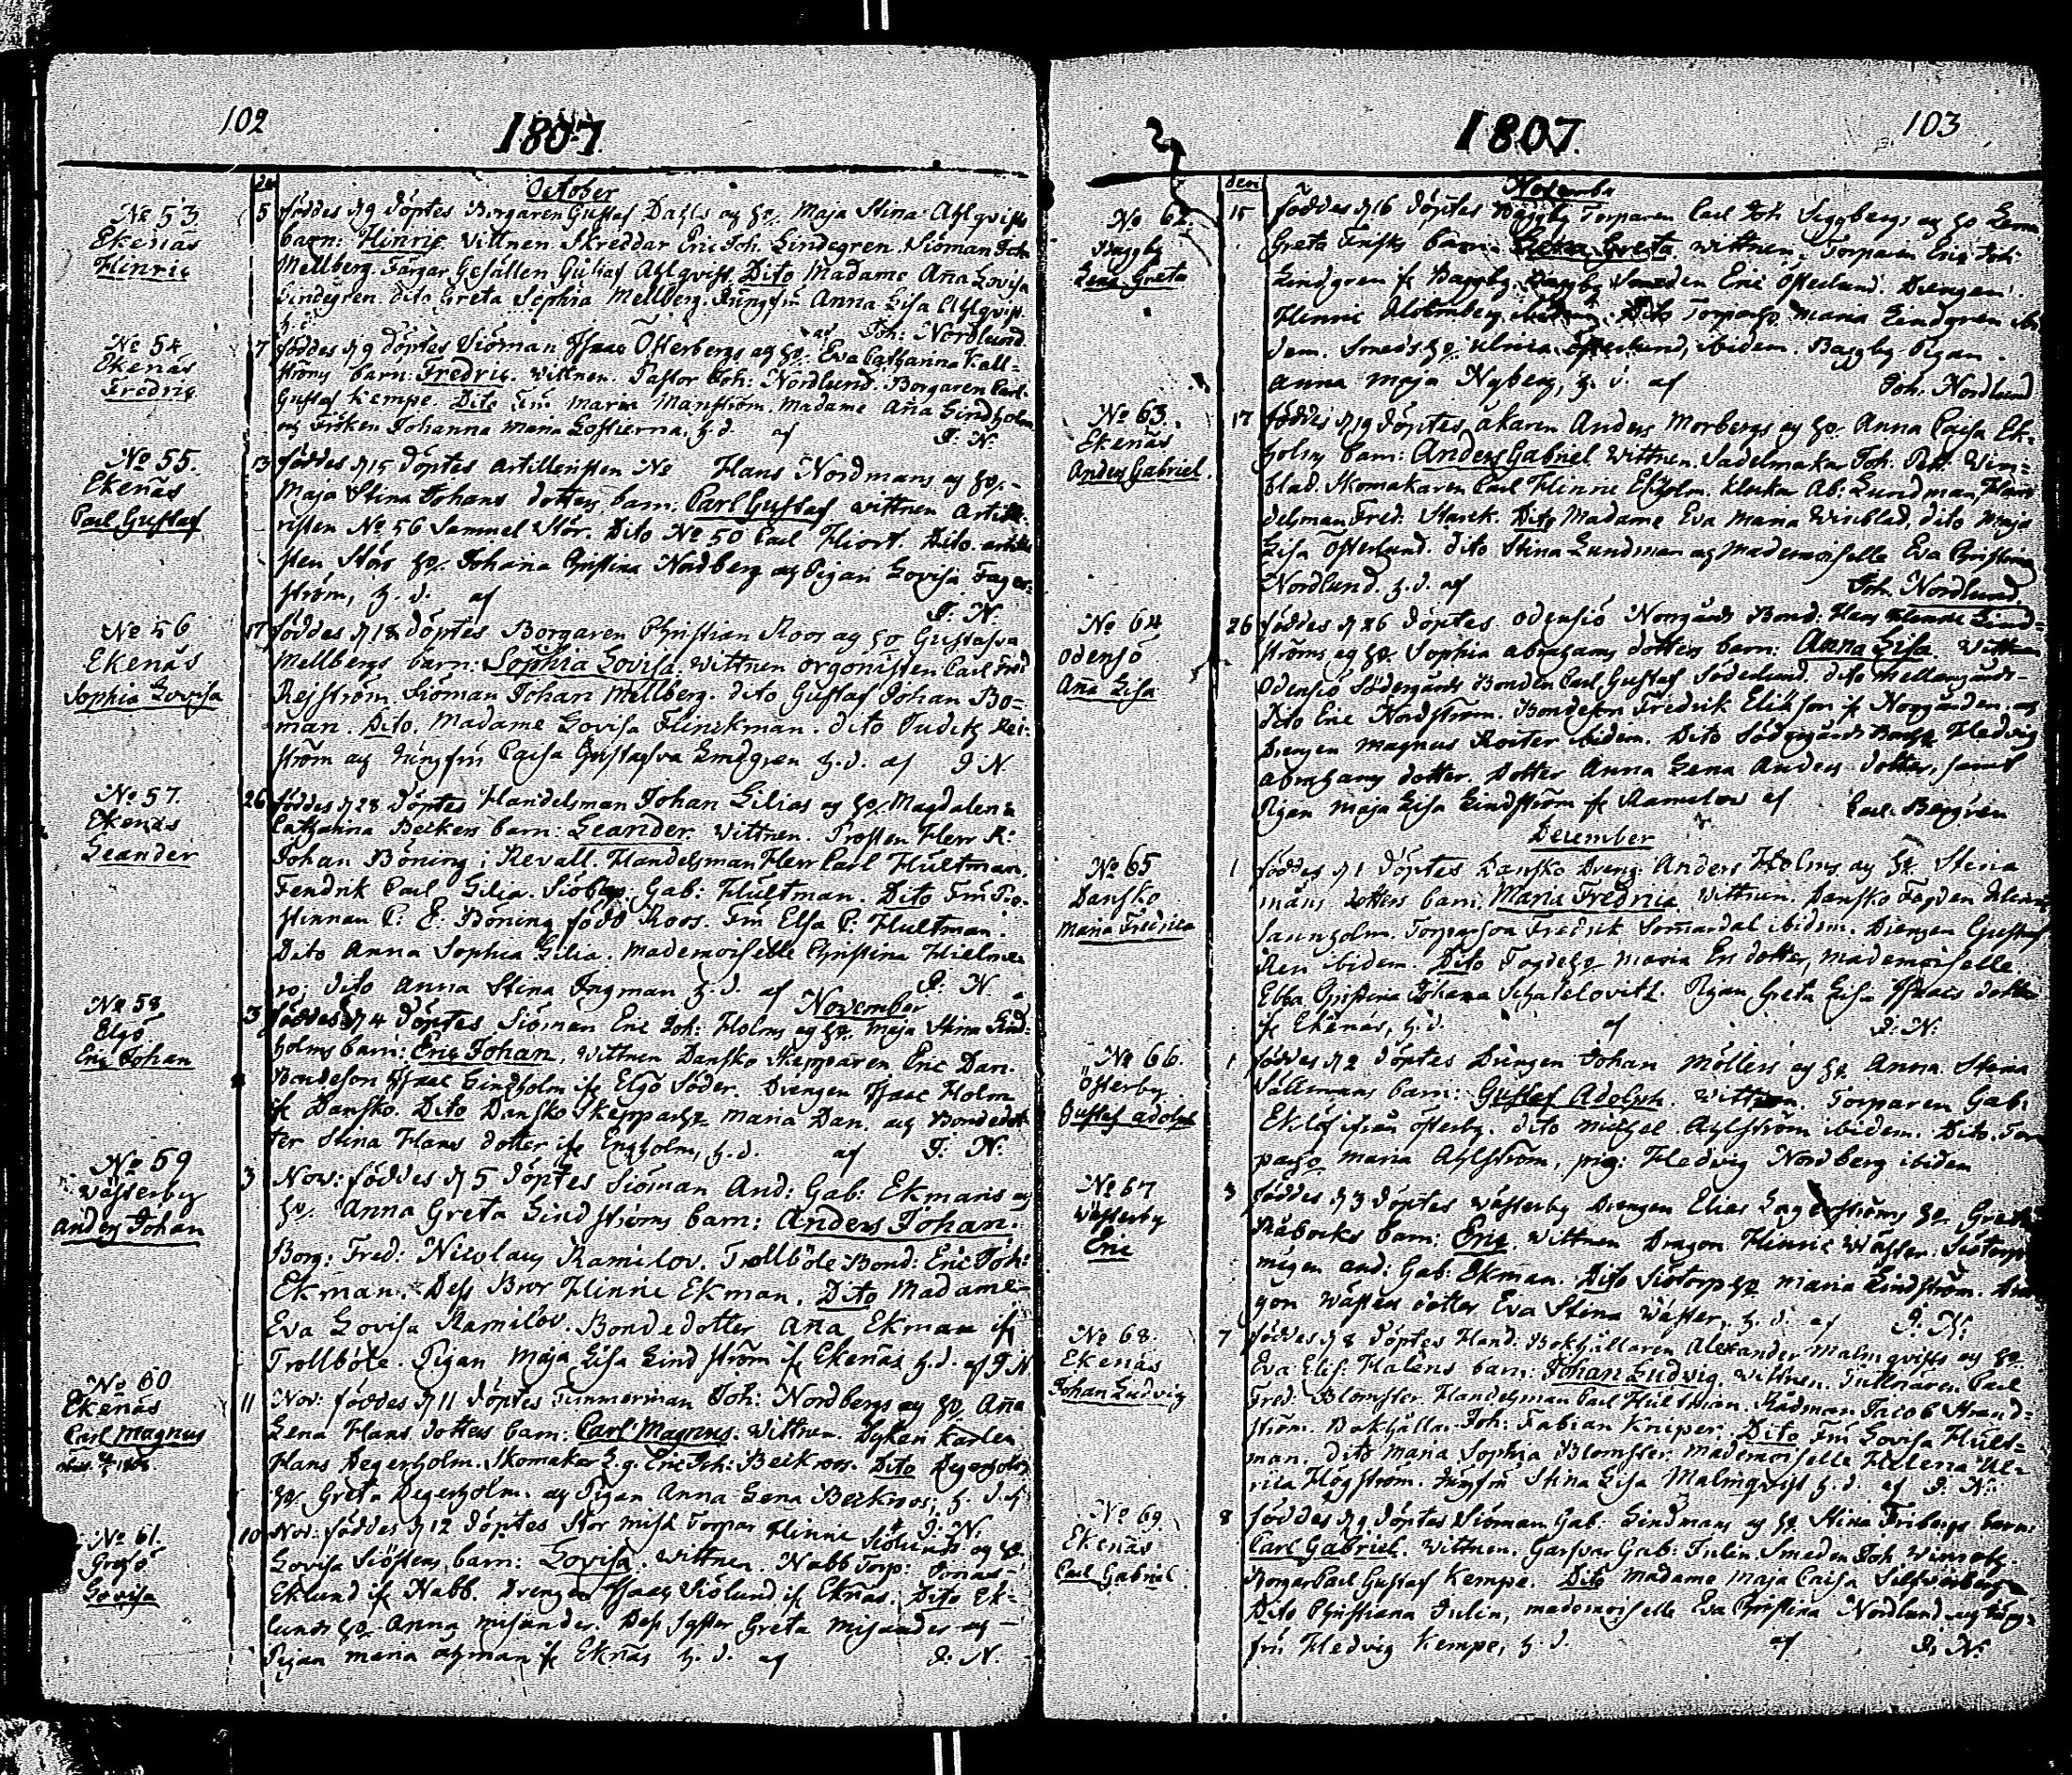 102
1807.
den
October
No 53.
Ekenäs
Hinric
5 föddes d 9 döptes Borgaren Gustaf Dahls ag ho. Maja Stina Ahlqvists
barn: Hinric. Wittnen Skreddar Eric Joh. Lindegren. Siöman Joh
Mellberg. Färgar Gesällen Gustaf Ahlqvist. Dito Madame Aña Lovisa
Lindegren. dito Greta Sophia Mellberg. Jungfru Anna Lisa Ahlqvist.
h. d. af Joh: Nordlund.
No 54
Ekenäs
Fredric
7 föddes d 9 döptes Siöman Isaac Österbergs ag ho. Eva Catharina Kall=
ströms barn: Fredric. Wittnen. Pastor Joh: Nordlund. Borgaren Carl
Gustaf Kempe. Dito Fru Maria Manström. Madame Aña Lindholm
ag Fröken Johanna Maria h. d. af J: N.
No 55.
Ekenäs
Carl Gustaf
13 föddes d 15 döptes Artilleristen No Hans Nordmans ag ho.
Maja Stina Johans dotters barn: Carl Gustaf Wittnen Artille=
risten No 56 Samuel Stör. Dito No 50 Carl Hiort. Dito. artille
sten Störs ho. Johana Christina Nordberg ag Pigan Lovisa Fager=
ström, h. d. af J: N.
No 56
Ekenäs
Sophia Lovisa
17 föddes d 18 döptes Borgaren Christian Roos ag ho Gustafva
Mellbergs barn: Sophia Lovisa. Wittnen orgonisten Carl Fred
Reijström. Siöman Johan Mellberg. dito Gustaf Johan Bo=
man. Dito. Madame Lovisa Flinckman. dito Judith Rei=
ström ag Jungfru Cajsa Gustafva Lindgren h. d. af J N
No 57.
Ekenäs
Leander
26 föddes d 28 döptes Handelsman Johan Lilias ag ho. Magdalena
Catharina Beckers barn: Leander. Wittnen. Prosten Herr R:
Johan Böning i Revall. Handelsman Herr Carl Hultman.
Fendrik Carl Lilia. Gab: Hultman. Dito Fru Pro=
stinnan P. E. Böning född Roos. Fru Elsa P. Hultman.
Dito Anna Sophia Lilia. Mademoiselle Christina Hielme
ro. dito Anna Stina Ingman h. d. af J. N.
November
No 58
Elgö
Eric Johan
3 föddes d 4 döptes Siöman Eric Joh: Holms ag ho. Maja Stina Lind=
holms barn: Eric Johan, Wittnen Danskö Skepparen Eric Dan.
Bondeson Isaac Lindholm ifr Elgö Söder. Drengen Isaac Holm
ifr Danskö. Dito Danskö Skepparho maria Dan. ag Bondedot
ter Stina Hans dotter ifr Engholm, h. d. af J: N.
No 59
Wästerby
Anders Johan
3 Nov: föddes d 5 döptes Siöman And: Gab: Ekmans ag
ho. Anna Greta Lindströms barn: Anders Johan.
Borg: Fred: Nicolaus Ramilov. Trollböle Bond: Eric Joh:
Ekman. Dess Bror Hinric Ekman. Dito Madame
Eva Lovisa Ramilov. Bondedotter Aña Ekman ifr
Trollböle. Pigan Maja Lisa Lindström ifr Ekenäs h. d. af J N
No 60
Ekenäs
Carl Magnus
11 Nov: föddes d 11 döptes Timmerman Joh: Nordbergs ag ho. Aña
Lena Hans dotters barn: Carl Magnus. Wittnen. Dykeri Karlen
Hans Degerholm. Skomakar L.g. Eric Joh: Beckroos. Dito Degerholms
ho Greta Degerholm. ag Pigan Anna Lena Beckroos, h. d. af
J: N.
No 61.
Grosö
Lovisa
10 Nov: föddes d 12 döptes Torpar Hinric Siölunds ag ho.
Lovisa Siöstens barn: Lovisa. Wittnen. Nabb Torp: Jonas
Eklund ifr Nabb. Drengen Isaac Siölund ifr Eknäs. Dito Ek=
lunds ho Anna Misander. Dess syster Greta Misander ag
Pigan maria ahman ifr Eknäs h. d. af J: N.
1807.
103
den
November
No 62.
Baggby
Lena Greta
15 föddes d 16 döptes Baggby Torparen Carl Joh Siggbergs ag ho Lena
Greta Frisks barn: Lena Greta. Wittnen, Torparen Eric Joh
Lindgren ifr Baggby. Smeden Eric Österlund. Drengen
Hinric Holmberg. Dito Torparho maria Lindgren ibi
dem. Smeds ho Österlund, ibidem. Baggby Pigan
Anna Maja Nyberg, h. d. af Joh. Nordlund
No 63.
Ekenäs
Anders Gabriel.
17 föddes d 19 döptes, åkaren Anders Morbergs ag ho. Anna Cajsa Ek=
holms barn: Anders Gabriel. Wittnen. Sadelmakar Joh. Pett: Win=
blad. Skomakaren Carl Hinric Ekholm. Klockar Ab: Lundman, Han
delsman Fred: Starck. Dito Madame Eva Maria Winblad, dito Maja
Lisa Österlund. dito Stina Lundman ag Mademoiselle Eva Christina
Nordlund. h. d. af Joh. Nordlund.
No 64
Odensö
Aña Lisa
26 föddes d 26 döptes Odensiö Norrgårds Bond: Hans Hinric Lind=
ströms ag ho. Sophia Abrahams dotters barn: Anna Lisa. Wittnen
Odensiö Södergårds Bonden Carl Gustaf Söderlund. dito Mellangårds
dito Eric Nordström. Bondeson Fredrik Erikson ifr Norrgården. ag
Drengen Magnus ibidem. Dito Södergårds Bondho Hedvig
Abrahams dotter. Dotter Anna Lena Anders dotter, samt
Pigan Maja Lisa Lindström ifr Ramilov af Carl Bergren
December
No 65
Danskö
Maria Fredrica
1 föddes d 1 döptes Danskö Dreng: Anders Holms ag ho. Stina
Mans dotters barn. Maria Fredrica. Wittnen. Danskö Fogden Hinric
Saxholm. Torparson Fredrik ibidem. Drengen Gustaf
Ren ibidem. Dito Fogdeho Maria Ers dotter, Mademoiselle
Ebba Christina Johana Schatelovitz. Pigan Greta Lisa Isaacs dotter
ifr Ekenäs, h. d. af J: N:
No 66.
Österby
Gustaf Adolph
1 föddes d 2 döptes Drengen Johan Möllers ag ho. Anna Stina
Sällmans barn: Gustaf Adolph. Wittnen. Torparen Gab:
Eklöf ifrån Österby. dito Michel Ahlström ibidem. Dito. Tor
parho maria Ahlström, pig: Hedvig Nordberg ibidem
No 67
Wästerby
Eric
3 föddes d 3 döptes Wästerby Drengen Elias Lagerströms ho Greta
Råbocks barn: Eric. Wittnen Dragon Hinric Wäster. Siötorp
mågen and: Gab: Ekman. Dito Siötorpho maria Lindström. Dra
gon Wästers dotter Eva Stina Wäster, h. d. af J: N:
No 68.
Ekenäs
Johan Ludvig
7 föddes d 8 döptes Hand: Bokhållaren Alexander Malmqvists ag ho.
Eva Elis: Halens barn: Johan Ludvig. Wittnen. Tullnären Carl
Fred: Blomster. Handelsman Carl Hultman. Rådman Jacob Strand=
ström. Bokhålla: Joh: Fabian Kniper. Dito Fru Lovisa Hult=
man. Dito Maria Sophia Blomster. Mademoiselle Helena Ul=
rica Högström. Jungfru Stina Lisa Malmqvist h. d. af J: N:
No 69.
Ekenäs
Carl Gabriel.
8 föddes d 9 döptes Siöman Gab: Lindmans ag ho. Stina Fribergs barn:
Carl Gabriel. Wittnen. Garfvar Gab: Julin. Smeden Joh
Borgar Carl Gustaf Kempe. Dito Madame Maja Cajsa Silfverberg
Dito Christiana Julin, mademoiselle Eva Christina Nordlund ag Jung=
fru Hedvig Kempe, h. d. af J: N: